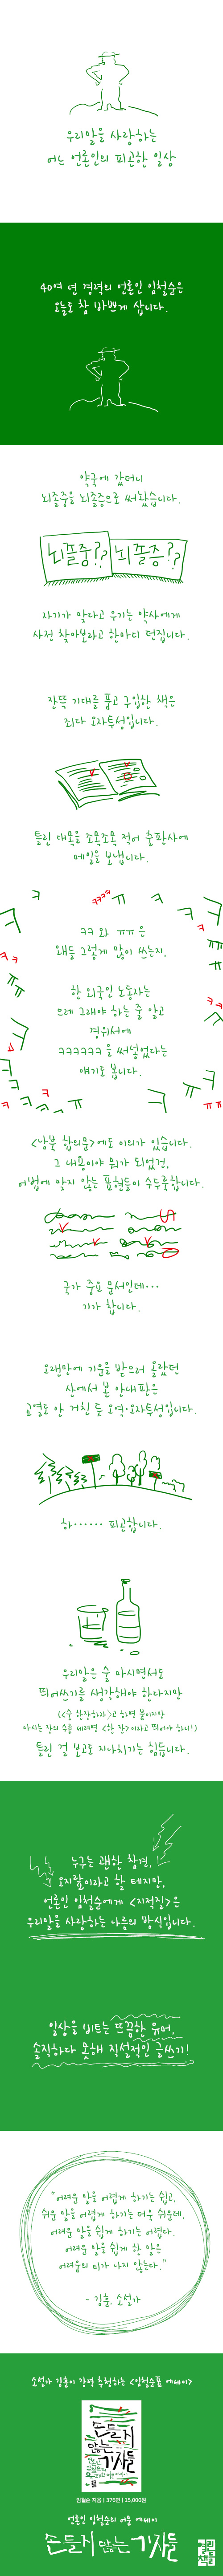 우리말을 사랑하는
어느 언론인의 피곤한 일상
40여 년 경력의 언론인 임철순은
오늘도 참 바쁘게 삽니다.
약국에 갔더니
뇌졸중을 뇌졸증으로 써놨습니다.
뇌졸중?? 뇌졸증??
자기가 맞다고 우기는 약사에게
사전 찾아보라고 한마디 던집니다.
잔뜩 기대를 품고 구입한 책은
죄다 오자투성입니다.
틀린 대목을 조목조목 적어 출판사에
메일을 보냅니다.
ㅋㅋ와 ㅠㅠ은
왜들 그렇게 많이 쓰는지,
한 외국인 노동자는
으레 그래야 하는 줄 알고
경위서에
ㅋㅋㅋㅋㅋㅋ을 써넣었다는
얘기도 봅니다.
<남북 합의문>에도 이의가 있습니다.
그 내용이야 뭐가 되었건,
어법에 맞지 않는 표현들이 수두룩합니다.
국가 중요 문서인데…
기가 찹니다.
오랜만에 기운을 받으러 올랐던
산에서 본 안내판은
교열도 안 거친 듯 오역·오자투성입니다.
하…… 피곤합니다.
우리말은 술 마시면서도
띄어쓰기를 생각해야 한다지만
(<술 한잔하자>고 하면 붙이지만
마시는 잔의 수를 세려면 <한 잔>이라고 띄어야 하니!)
틀린 걸 보고도 지나치기는 힘듭니다.
누구는 괜한 참견,
오지랖이라고 할 테지만,
언론인 임철순에게 <지적질>은
우리말을 사랑하는 나름의 방식입니다.
일상을 비트는 뜨끔한 유머,
솔직하다 못해 직설적인 글쓰기!
"어려운 말을 어렵게 하기는 쉽고,
쉬운 말을 어렵게 하기는 더욱 쉬운데,
어려운 말을 쉽게 하기는 어렵다.
어려운 말을 쉽게 한 말은
어려움의 티가 나지 않는다."
- 김훈, 소설가
소설가 김훈이 강력 추천하는 <임철순표 에세이>
손들지
않는
기자들
임철순 지음 | 376면 | 15,000원
언론인 임철순의 어문 에세이
손들지 않는 기자들
열린
책들